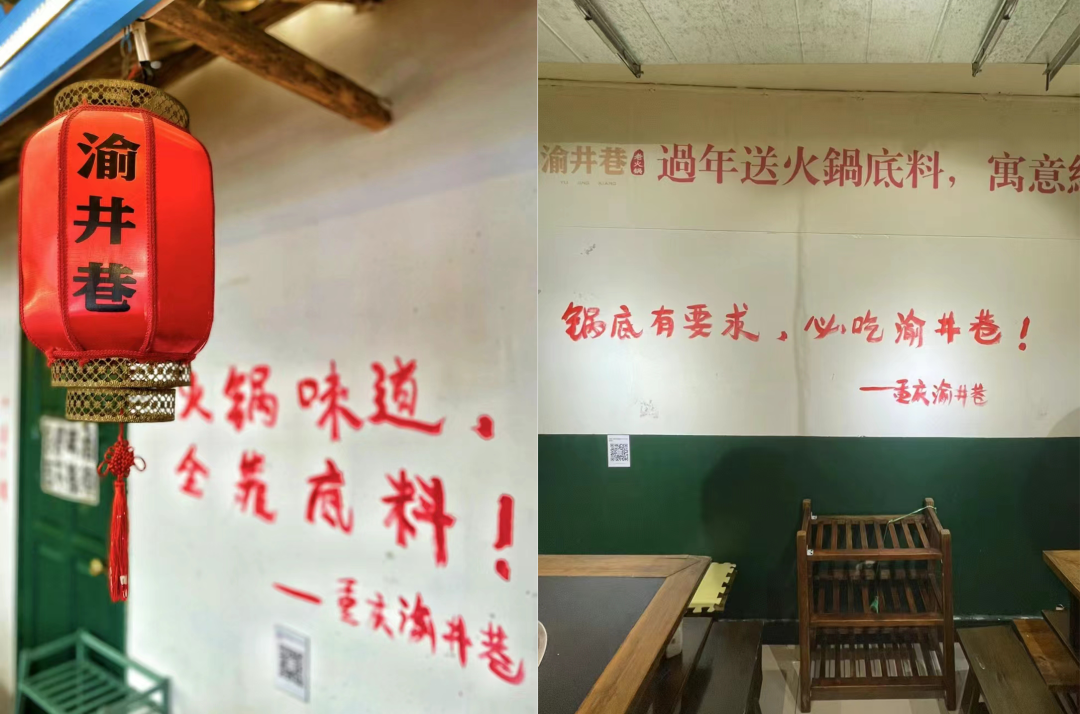 渝井巷
火锅味道，
全靠底料！
—重庆渝井巷
渝井巷 老火锅 過年送火鍋底料，寓意
锅底有要求，必吃渝井巷！
—重庆渝井巷